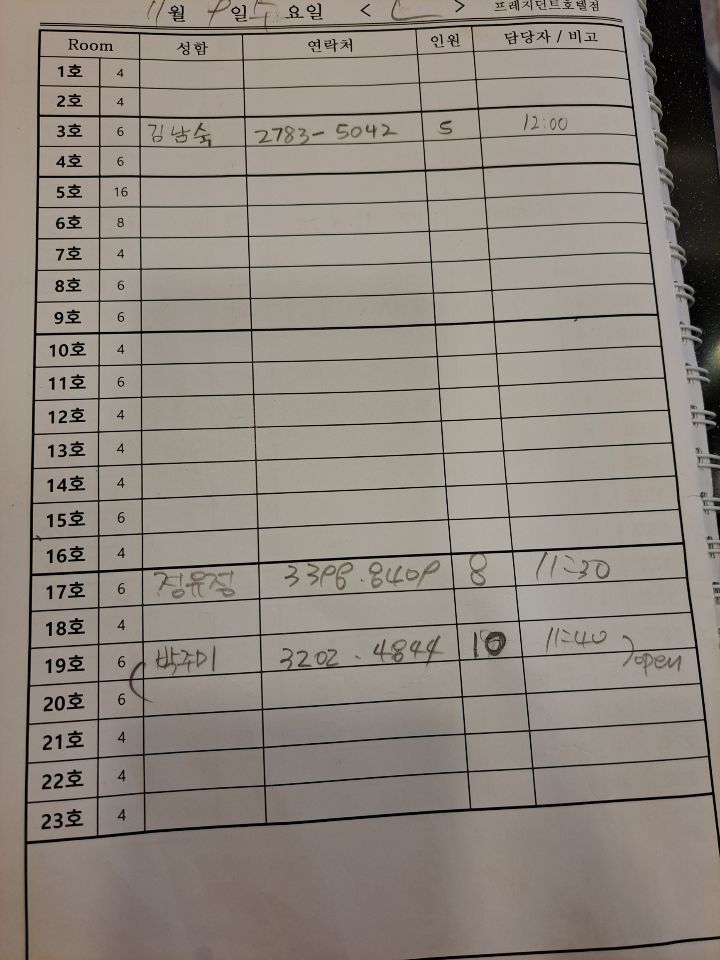 11월 9일 요일 < L > 프레지던트호텔점
Room 성함 연락처 인원 담당자 / 비고
1호 4
2호 4
3호 6 김남숙 2783-5042 5 12:00
4호 6
5호 16
6호 8
7호 4
8호 6
9호 6
10호 4
11호 6
12호 4
13호 4
14호 4
15호 6
16호 4
17호 6 정유정 3398.8409 8 11:30
18호 4
19호 6 박주미 3202.4844 10 11:40
open
20호 6
21호 4
22호 4
23호 4